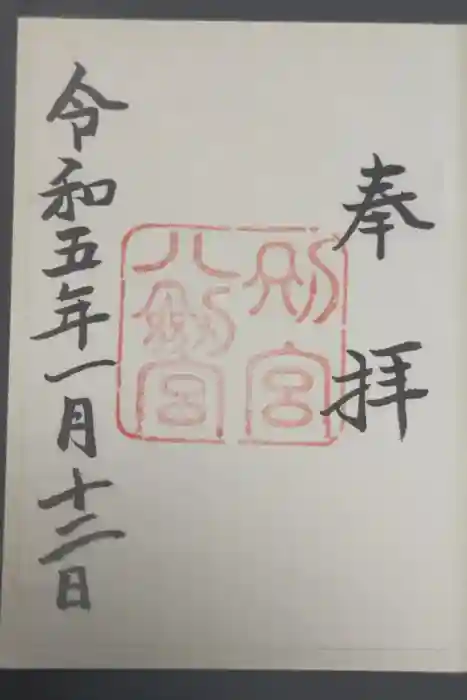 奉拝
別宮
八剣宮
令和五年一月十二日